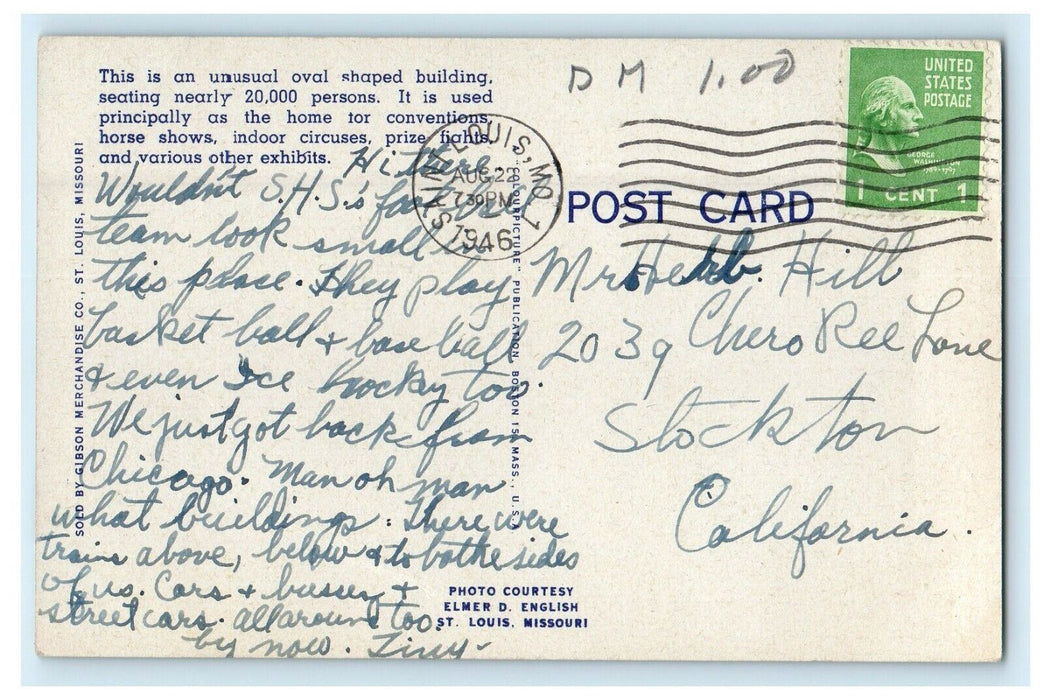 This is an unusual oval shaped building,
seating nearly 20,000 persons. It is used
principally as the home for conventions,
horse shows, indoor circuses, prize fights,
and various other exhibits.
Hi there
Wouldn't S.H.S.'s
team look small in
this place. They play
basket ball & base ball
& even Ice hockey too.
We just got back from
Chicago. Man oh man
what buildings. There were
trains above, below & to bothe sides
of us. Cars & busses &
street cars all around too.
by now. Tiny-
SOLD BY GIBSON MERCHANDISE CO., ST. LOUIS, MISSOURI
"COLOURPICTURE" PUBLICATION, BOSTON 15, MASS., U.S.A.
PHOTO COURTESY
ELMER D. ENGLISH
ST. LOUIS, MISSOURI
DM 1.00
SAINT LOUIS, MO. 1
AUG 22
7 30 PM
1946
UNITED
STATES
POSTAGE
GEORGE
WASHINGTON
1789-1797
1 CENT 1
POST CARD
Mr Herb. Hill
2039 CheroKee Lane
Stockton
California.